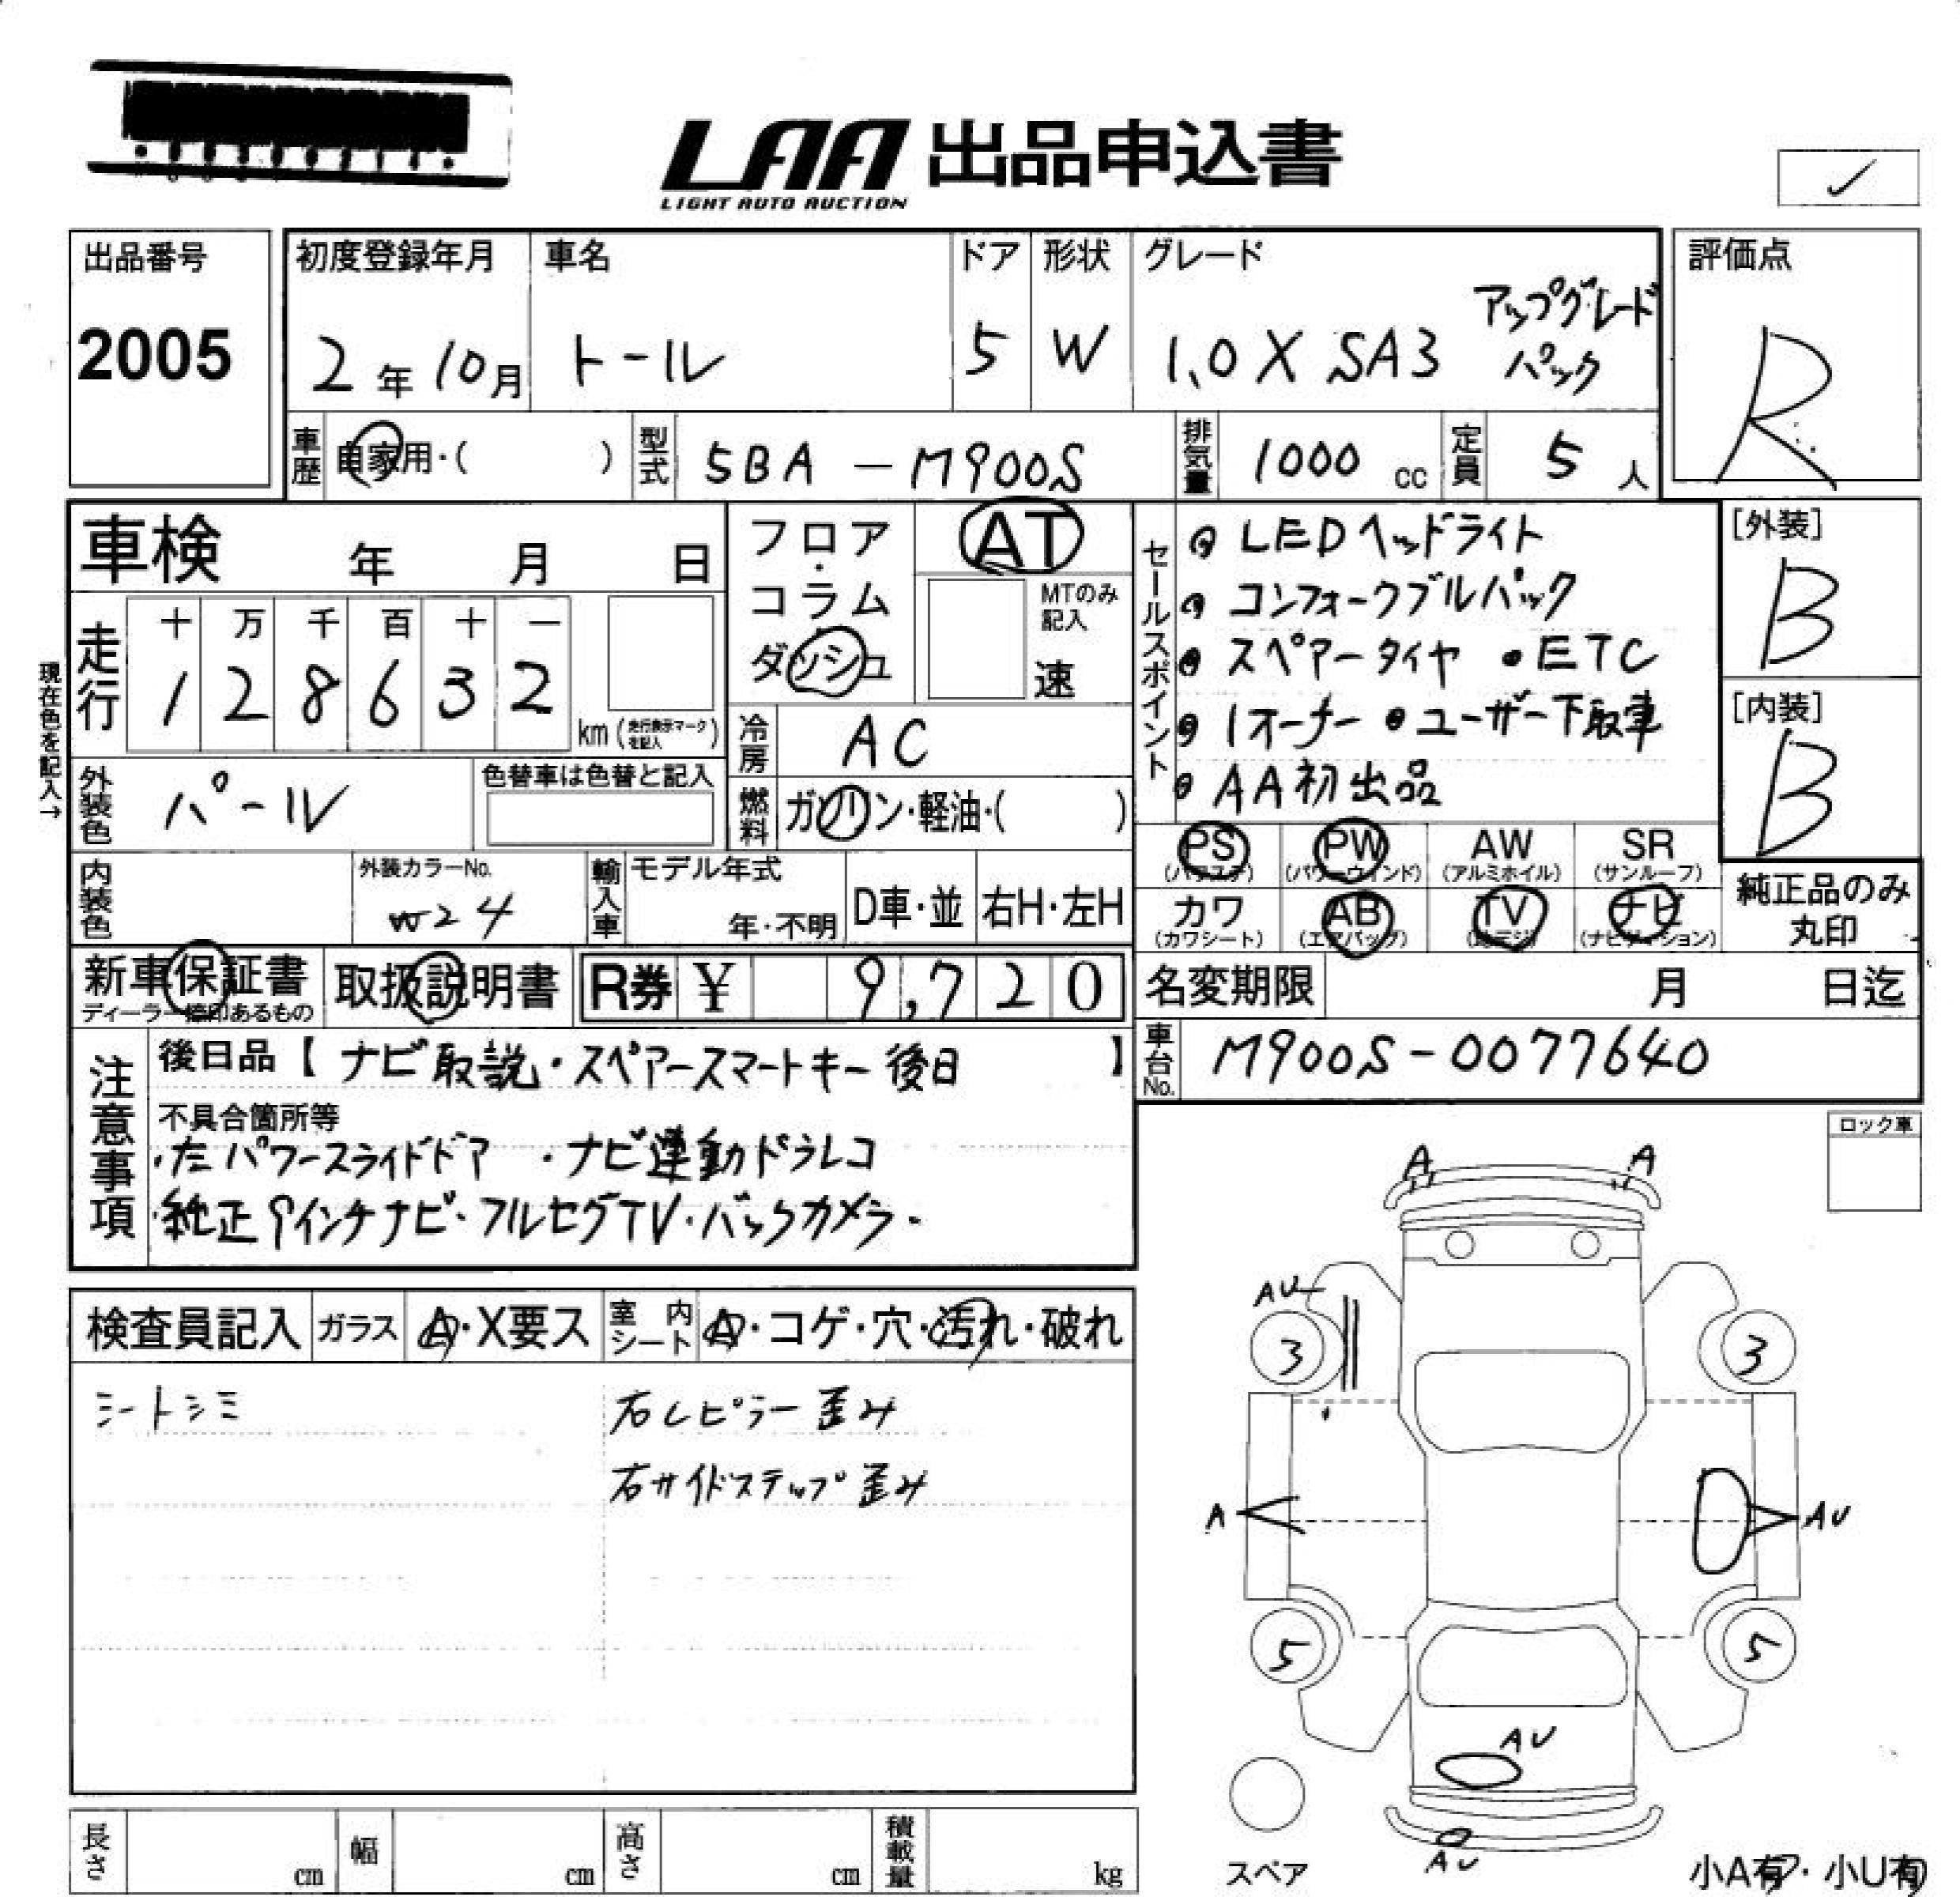 LAA 出品申込書
LIGHT AUTO AUCTION
✓
出品番号
2005
初度登録年月
2年10月
車名
トール
ドア
5
形状
W
グレード
1.0 X SA3 アップグレード
パック
評価点
R
車歴 自家用・( )
型式 5BA - M900S
排気量 1000 cc
定員 5 人
車検 年 月 日
走行
十 万 千 百 十 一
1 2 8 6 3 2
km (走行表示マークを記入)
現在色を記入→
外装色 パール
色替車は色替と記入
内装色
外装カラーNo.
W24
フロア・
コラム・
ダッシュ
AT
MTのみ
記入
速
冷房 AC
燃料 ガソリン・軽油・( )
輸入車 モデル年式
年・不明
D車・並
右H・左H
セールスポイント
LEDヘッドライト
コンフォータブルパック
スペアータイヤ ・ETC
1オーナー ・ユーザー下取車
AA初出品
[外装]
B
[内装]
B
PS PW AW SR
(パワステ) (パワーウインド) (アルミホイル) (サンルーフ)
カワ AB TV ナビ
(カワシート) (エアバッグ) (地デジ) (ナビゲーション)
純正品のみ
丸印
新車保証書
ディーラー捺印あるもの
取扱説明書
R券 ¥ 9,720
名変期限 月 日迄
車台No. M900S-0077640
注意事項
後日品【ナビ取説・スペアースマートキー後日】
不具合箇所等
・左パワースライドドア ・ナビ連動ドラレコ
・純正9インチナビ・フルセグTV・バックカメラ・
ロック車
検査員記入 ガラス A・X要ス 室内シート A・コゲ・穴・汚れ・破れ
シートシミ
右Cピラー歪み
右サイドステップ歪み
A A
AU
3 3
A AU
5 5
AU
AU
スペア
小A有・小U有
長さ cm 幅 cm 高さ cm 積載量 kg